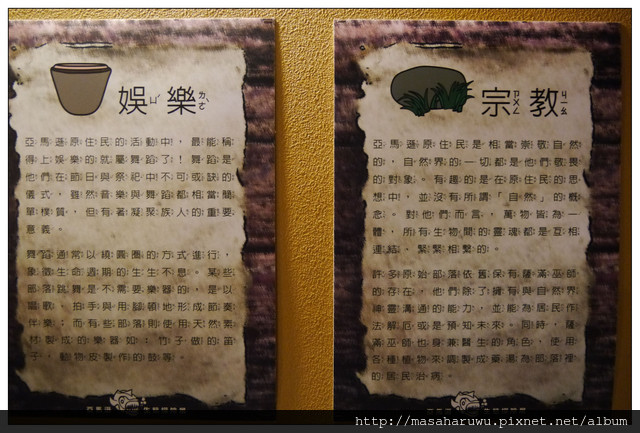 娛樂
亞馬遜原住民的活動中，最能稱
得上娛樂的就屬舞蹈了！舞蹈是
他們在節日與祭祀中不可或缺的
儀式，雖然音樂與舞蹈都相當簡
單樸質，但有著凝聚族人的重要
意義。
舞蹈通常以繞圓圈的方式進行，
象徵生命週期的生生不息。某些
部落跳舞是不需要樂器的，是以
唱歌、拍手與用腳頓地形成節奏
伴樂；而有些部落則使用天然素
材製成的樂器如：竹子做的笛
子，動物皮製作的鼓等。
宗教
亞馬遜原住民是相當崇敬自然
的，自然界的一切都是他們敬畏
的對象。有趣的是在原住民的思
想中，並沒有所謂「自然」的概
念。對他們而言，萬物皆為一
體，所有生物間的靈魂都是互相
連結、緊緊相繫的。
許多原始部落依舊保有薩滿巫師
的存在，他們除了擁有與自然界
神靈溝通的能力，並能為居民作
法解厄或是預知未來。同時，薩
滿巫師也身兼醫生的角色，使用
各種植物來調製成藥湯為部落裡
的居民治病。
http://masaharuwu.pixnet.net/album